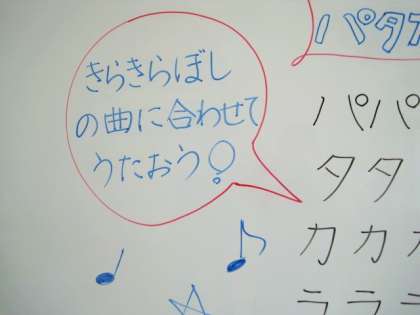 きらきらぼし
の曲に合わせて
うたおう!
パタカ
パパ
タタ
カカカ
ラララ